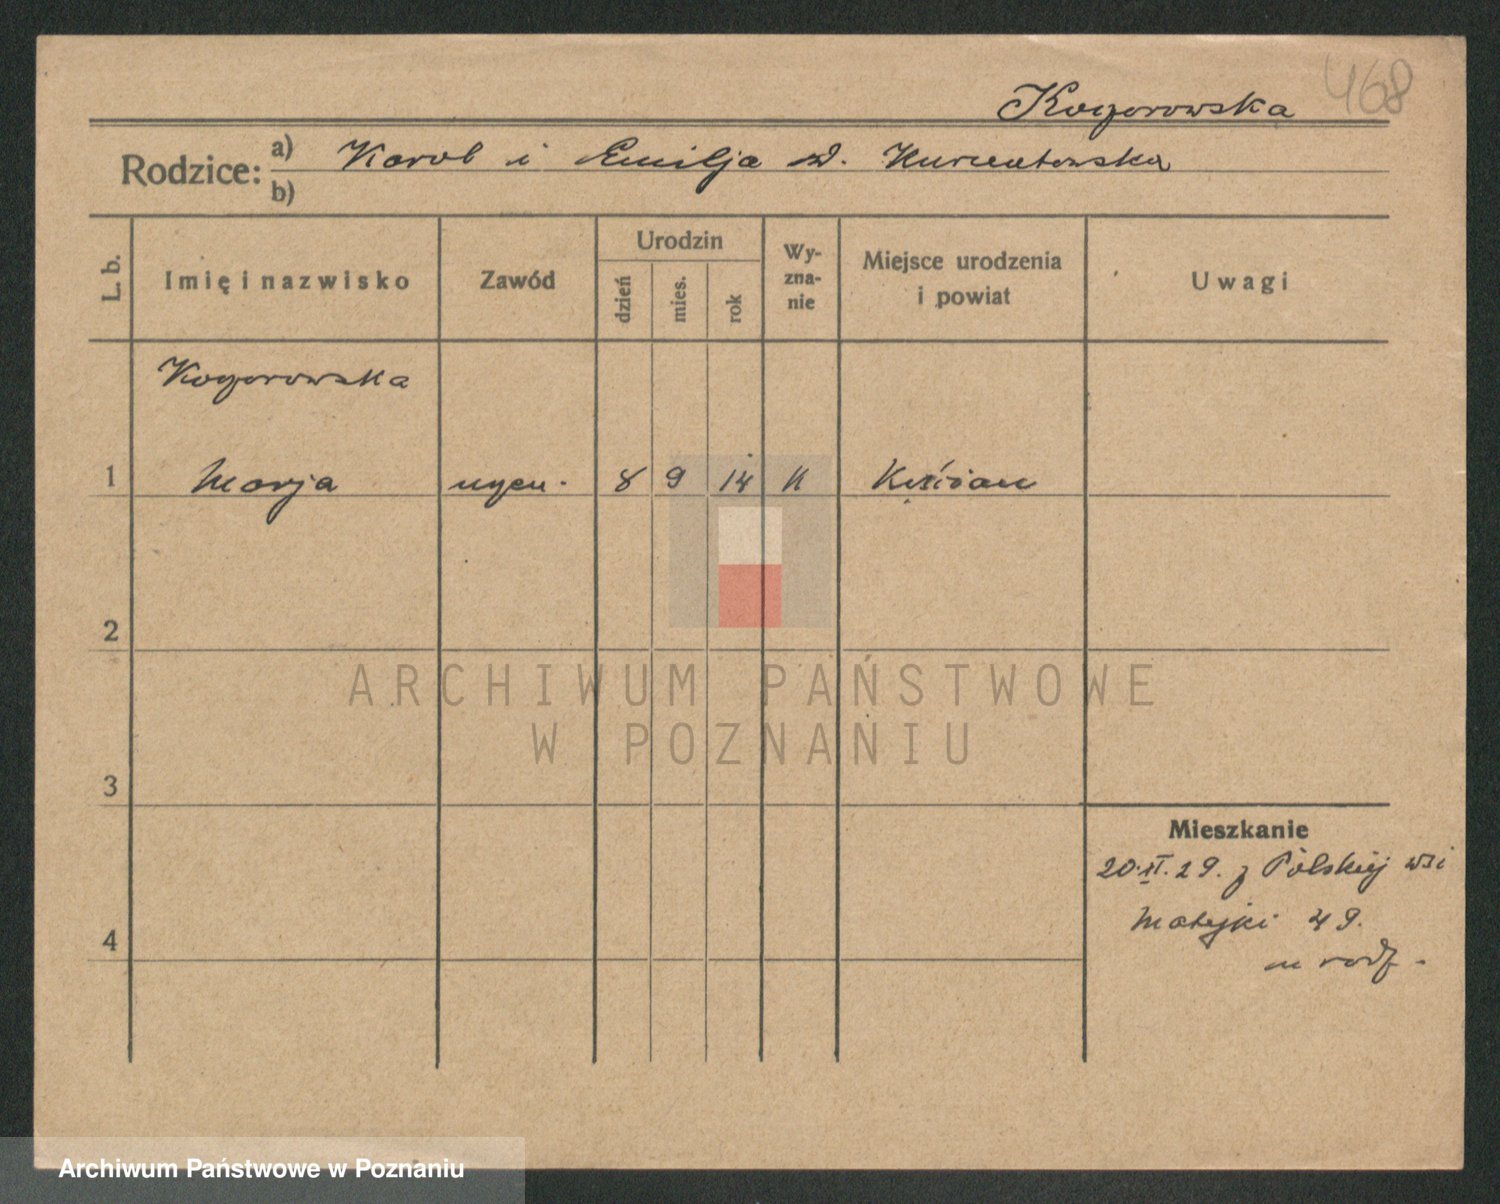 468
Kogorowska
Rodzice: a) Karol i Emilja z d.
b)
L. b.
Imię i nazwisko
Zawód
Urodzin
dzień
mies.
rok
Wy-
zna-
nie
Miejsce urodzenia
i powiat
Uwagi
Kogorowska
1 Marja uczen. 8 9 14 K Kościan
2
3
4
Mieszkanie
20.II.29. z Polskiej wsi
Matejki 49.
u rodz.
ARCHIWUM PAŃSTWOWE
W POZNANIU
Archiwum Państwowe w Poznaniu